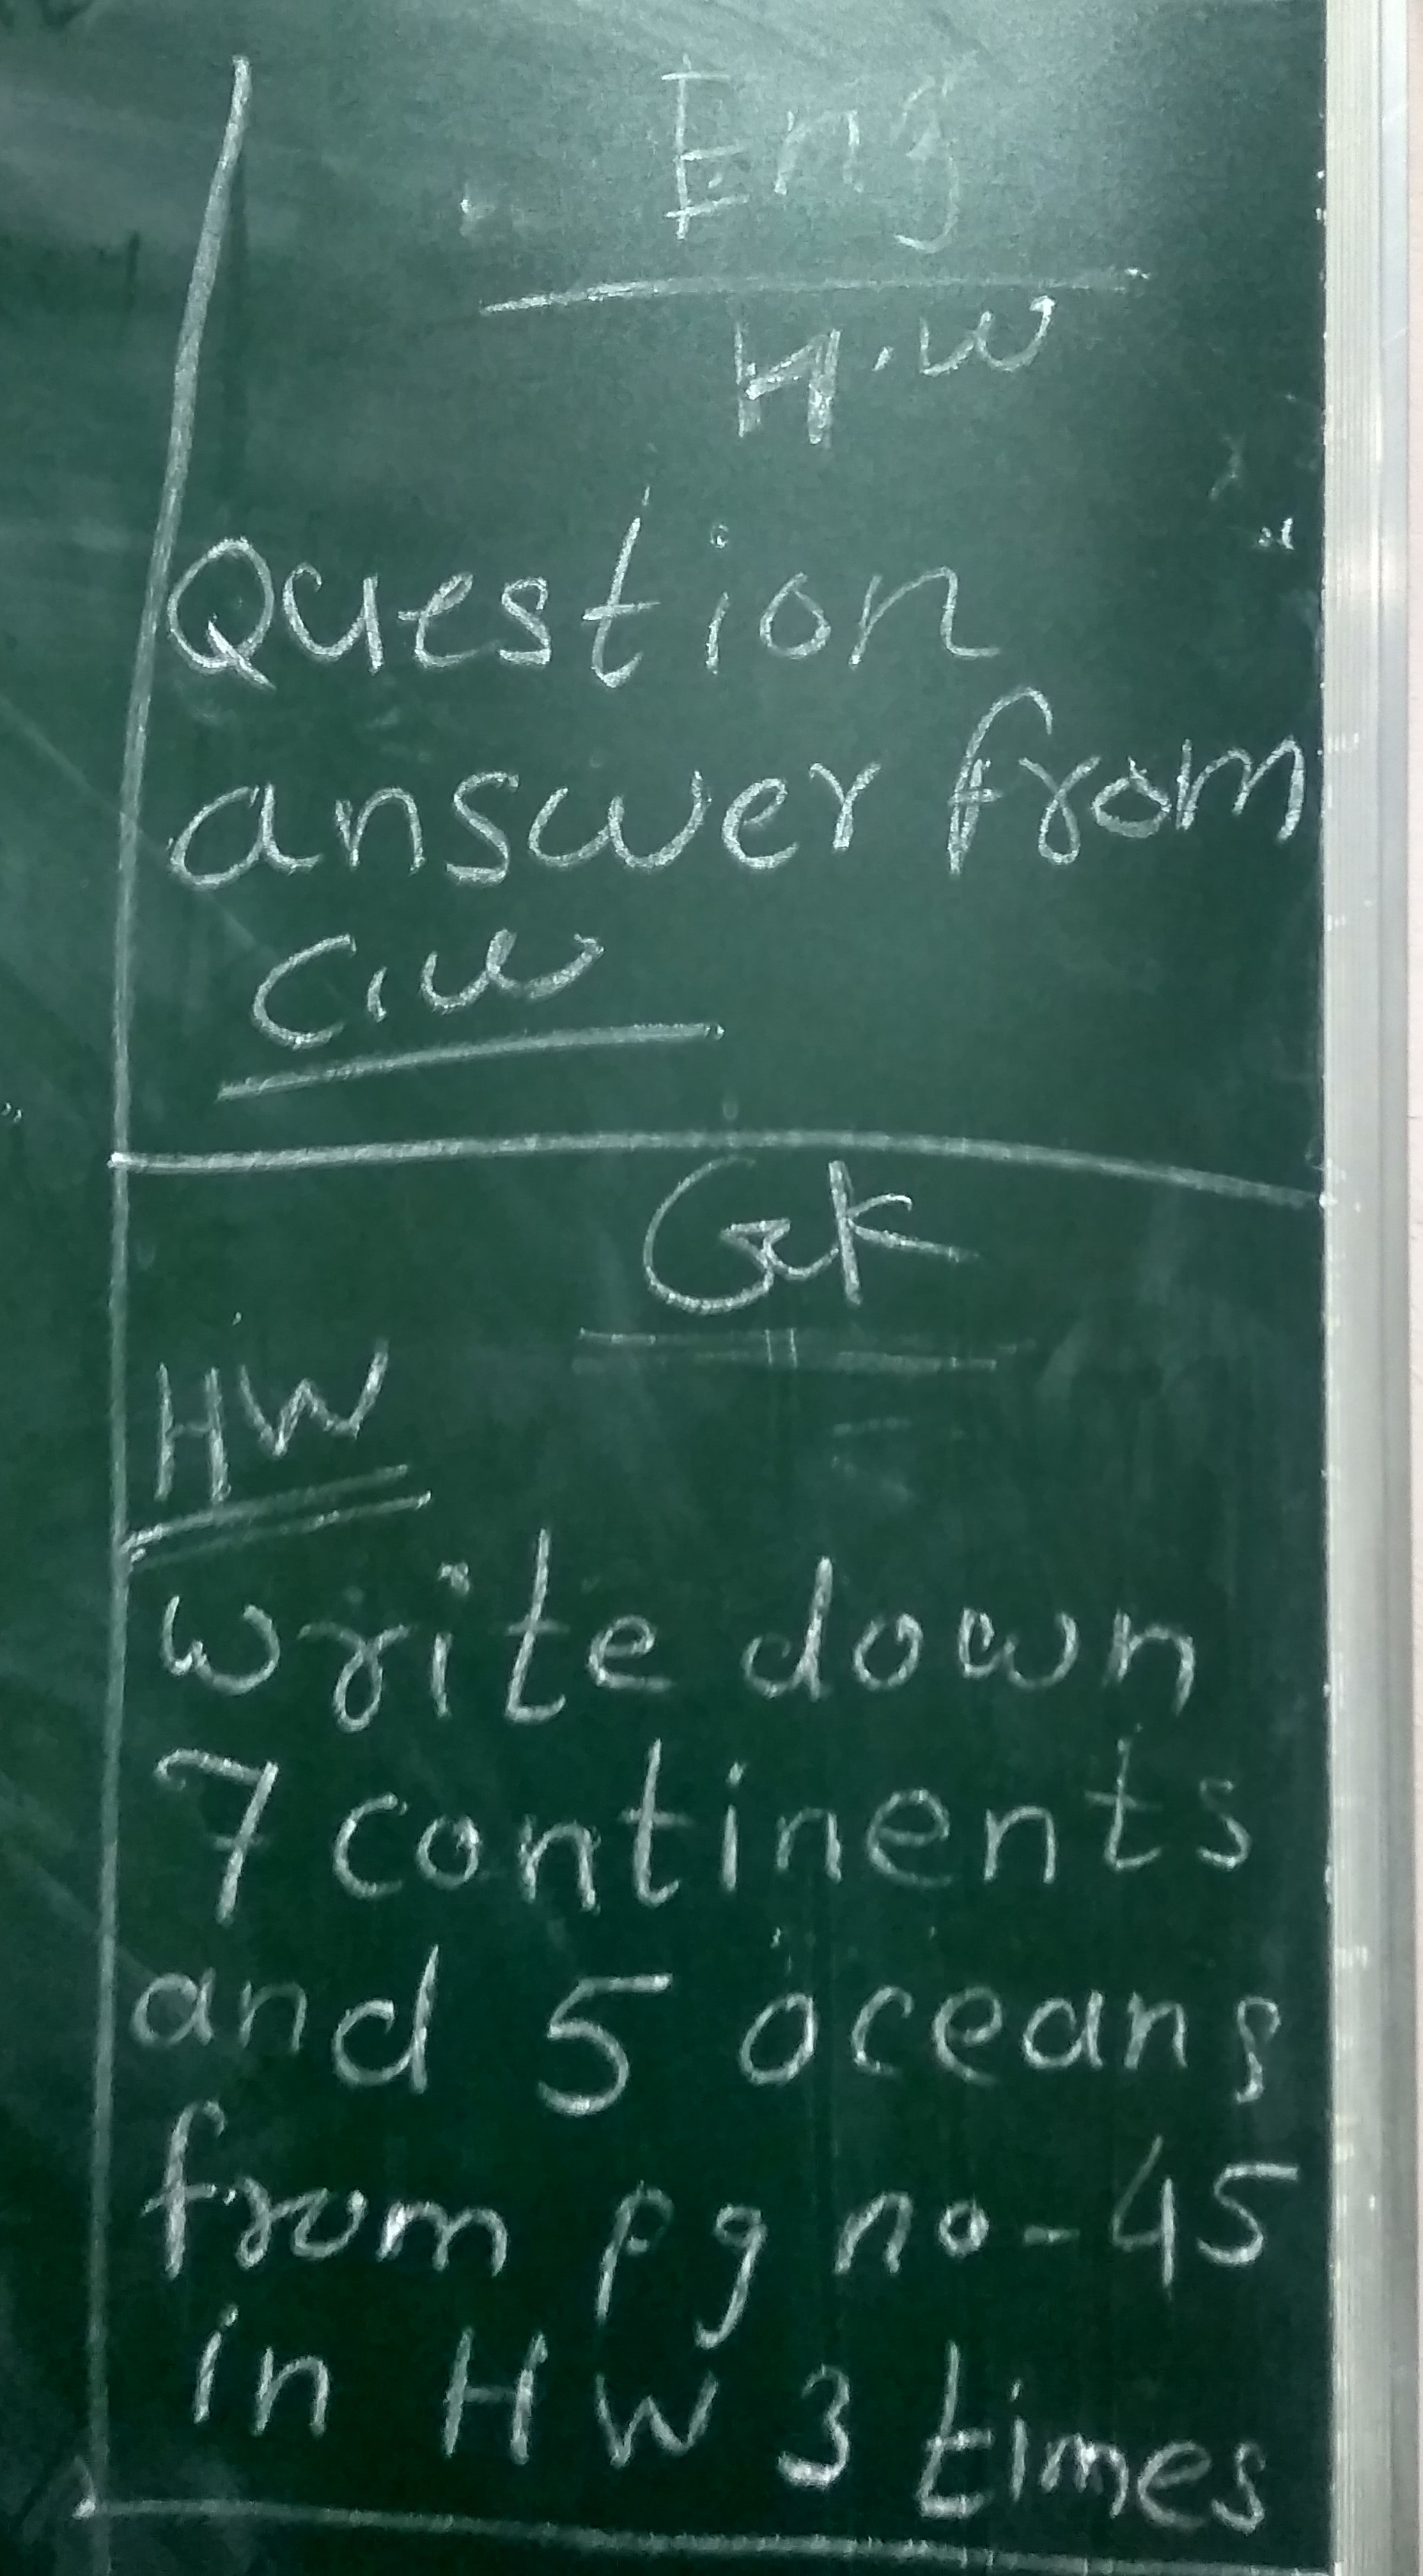 Eng
H.W
Question
answer from
C.W
GK
HW
write down
7 continents
and 5 oceans
from pg no-45
in HW 3 times